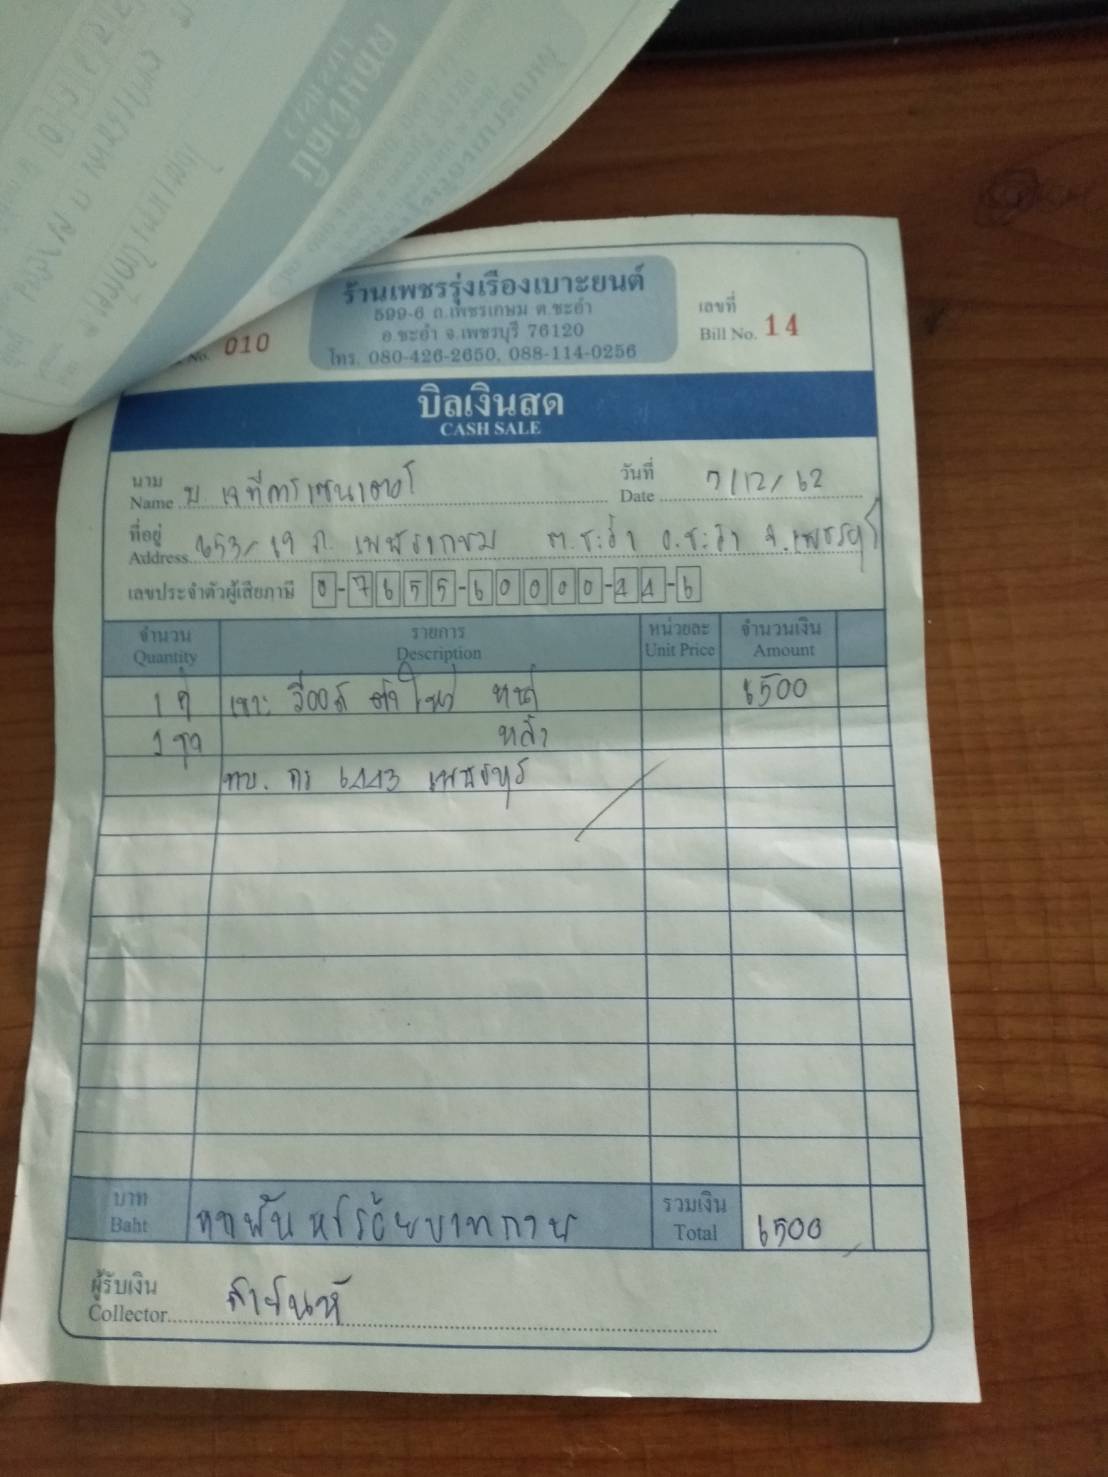 ร้านเพชรรุ่งเรืองเบาะยนต์
599-6 ถ.เพชรเกษม ต.ชะอำ
อ.ชะอำ จ.เพชรบุรี 76120
โทร. 080-426-2650, 088-114-0256
No. 010
เลขที่
Bill No. 14
บิลเงินสด
CASH SALE
นาม
Name บ. เจที
วันที่
Date 7/12/62
ที่อยู่
Address 653/19 ถ. เพชรเกษม ต.ชะอำ อ.ชะอำ จ.เพชรบุรี
เลขประจำตัวผู้เสียภาษี 0-7655-60000-44-6
จำนวน รายการ หน่วยละ จำนวนเงิน
Quantity Description Unit Price Amount
1 เบาะ วีออส หน้า 6500
1 ชุด หลัง
ทบ. กร 6443 เพชรบุรี
บาท
Baht หกพันห้าร้อยบาทถ้วน
รวมเงิน
Total 6500
ผู้รับเงิน
Collector